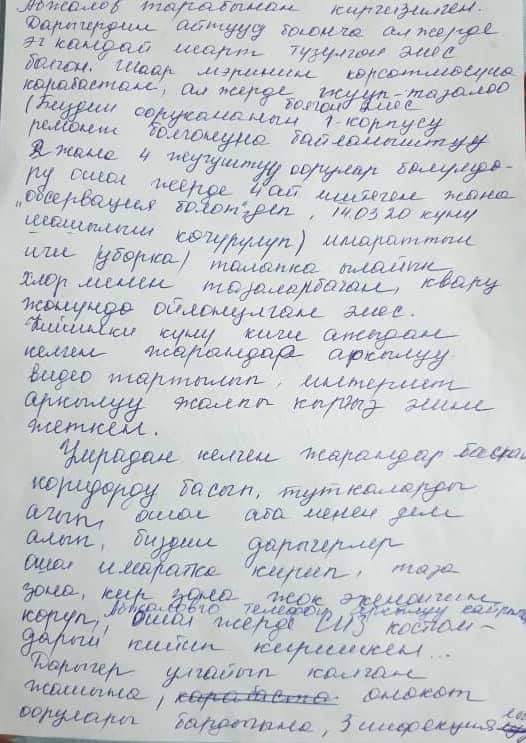 Абжалов тарабынан киргизилген.
Дарыгердин айтууу боюнча ал жерде
эч кандай шарт түзүлгөн эмес
болгон. Шаар мэринин көрсөтмөсүнө
карабастан, ал жерде жууп-тазалоо
болгон эмес
(Биздин оорукананын 1-корпусу
ремонт болгонуна байланыштуу
2 жана 4 жугуштуу оорулар бөлүмдө-
рү ошол жерде 4 ай иштеген жана
"обсервация болот" деп, 14.03.20 күнү
шашылыш көчүрүлүп) имараттын
ичи (уборка) талапка ылайык
хлор менен тазаланбаган, кварц
жөнүндө ойлонулган эмес.
Кийинки күнү кичи ажыдан
келген жарандар аркылуу
видео тартылып, интернет
аркылуу жалпы кыргыз элине
жеткен.
Умрадан келген жарандар баскан
коридорду басып, туткаларды
ачып, ошол аба менен дем
алып, биздин дарыгерлер
ошол имаратка кирип, таза
зона, кир зона жок экендигин
көрүп, Абжаловго телефон аркылуу кайрылып
ошол жерде СИЗ костюм-
дарын кийип киришкен...
Дарыгер улгайып калган
жашына, карабаста өнөкөт
оорулары бардыгына, 3 инфекция